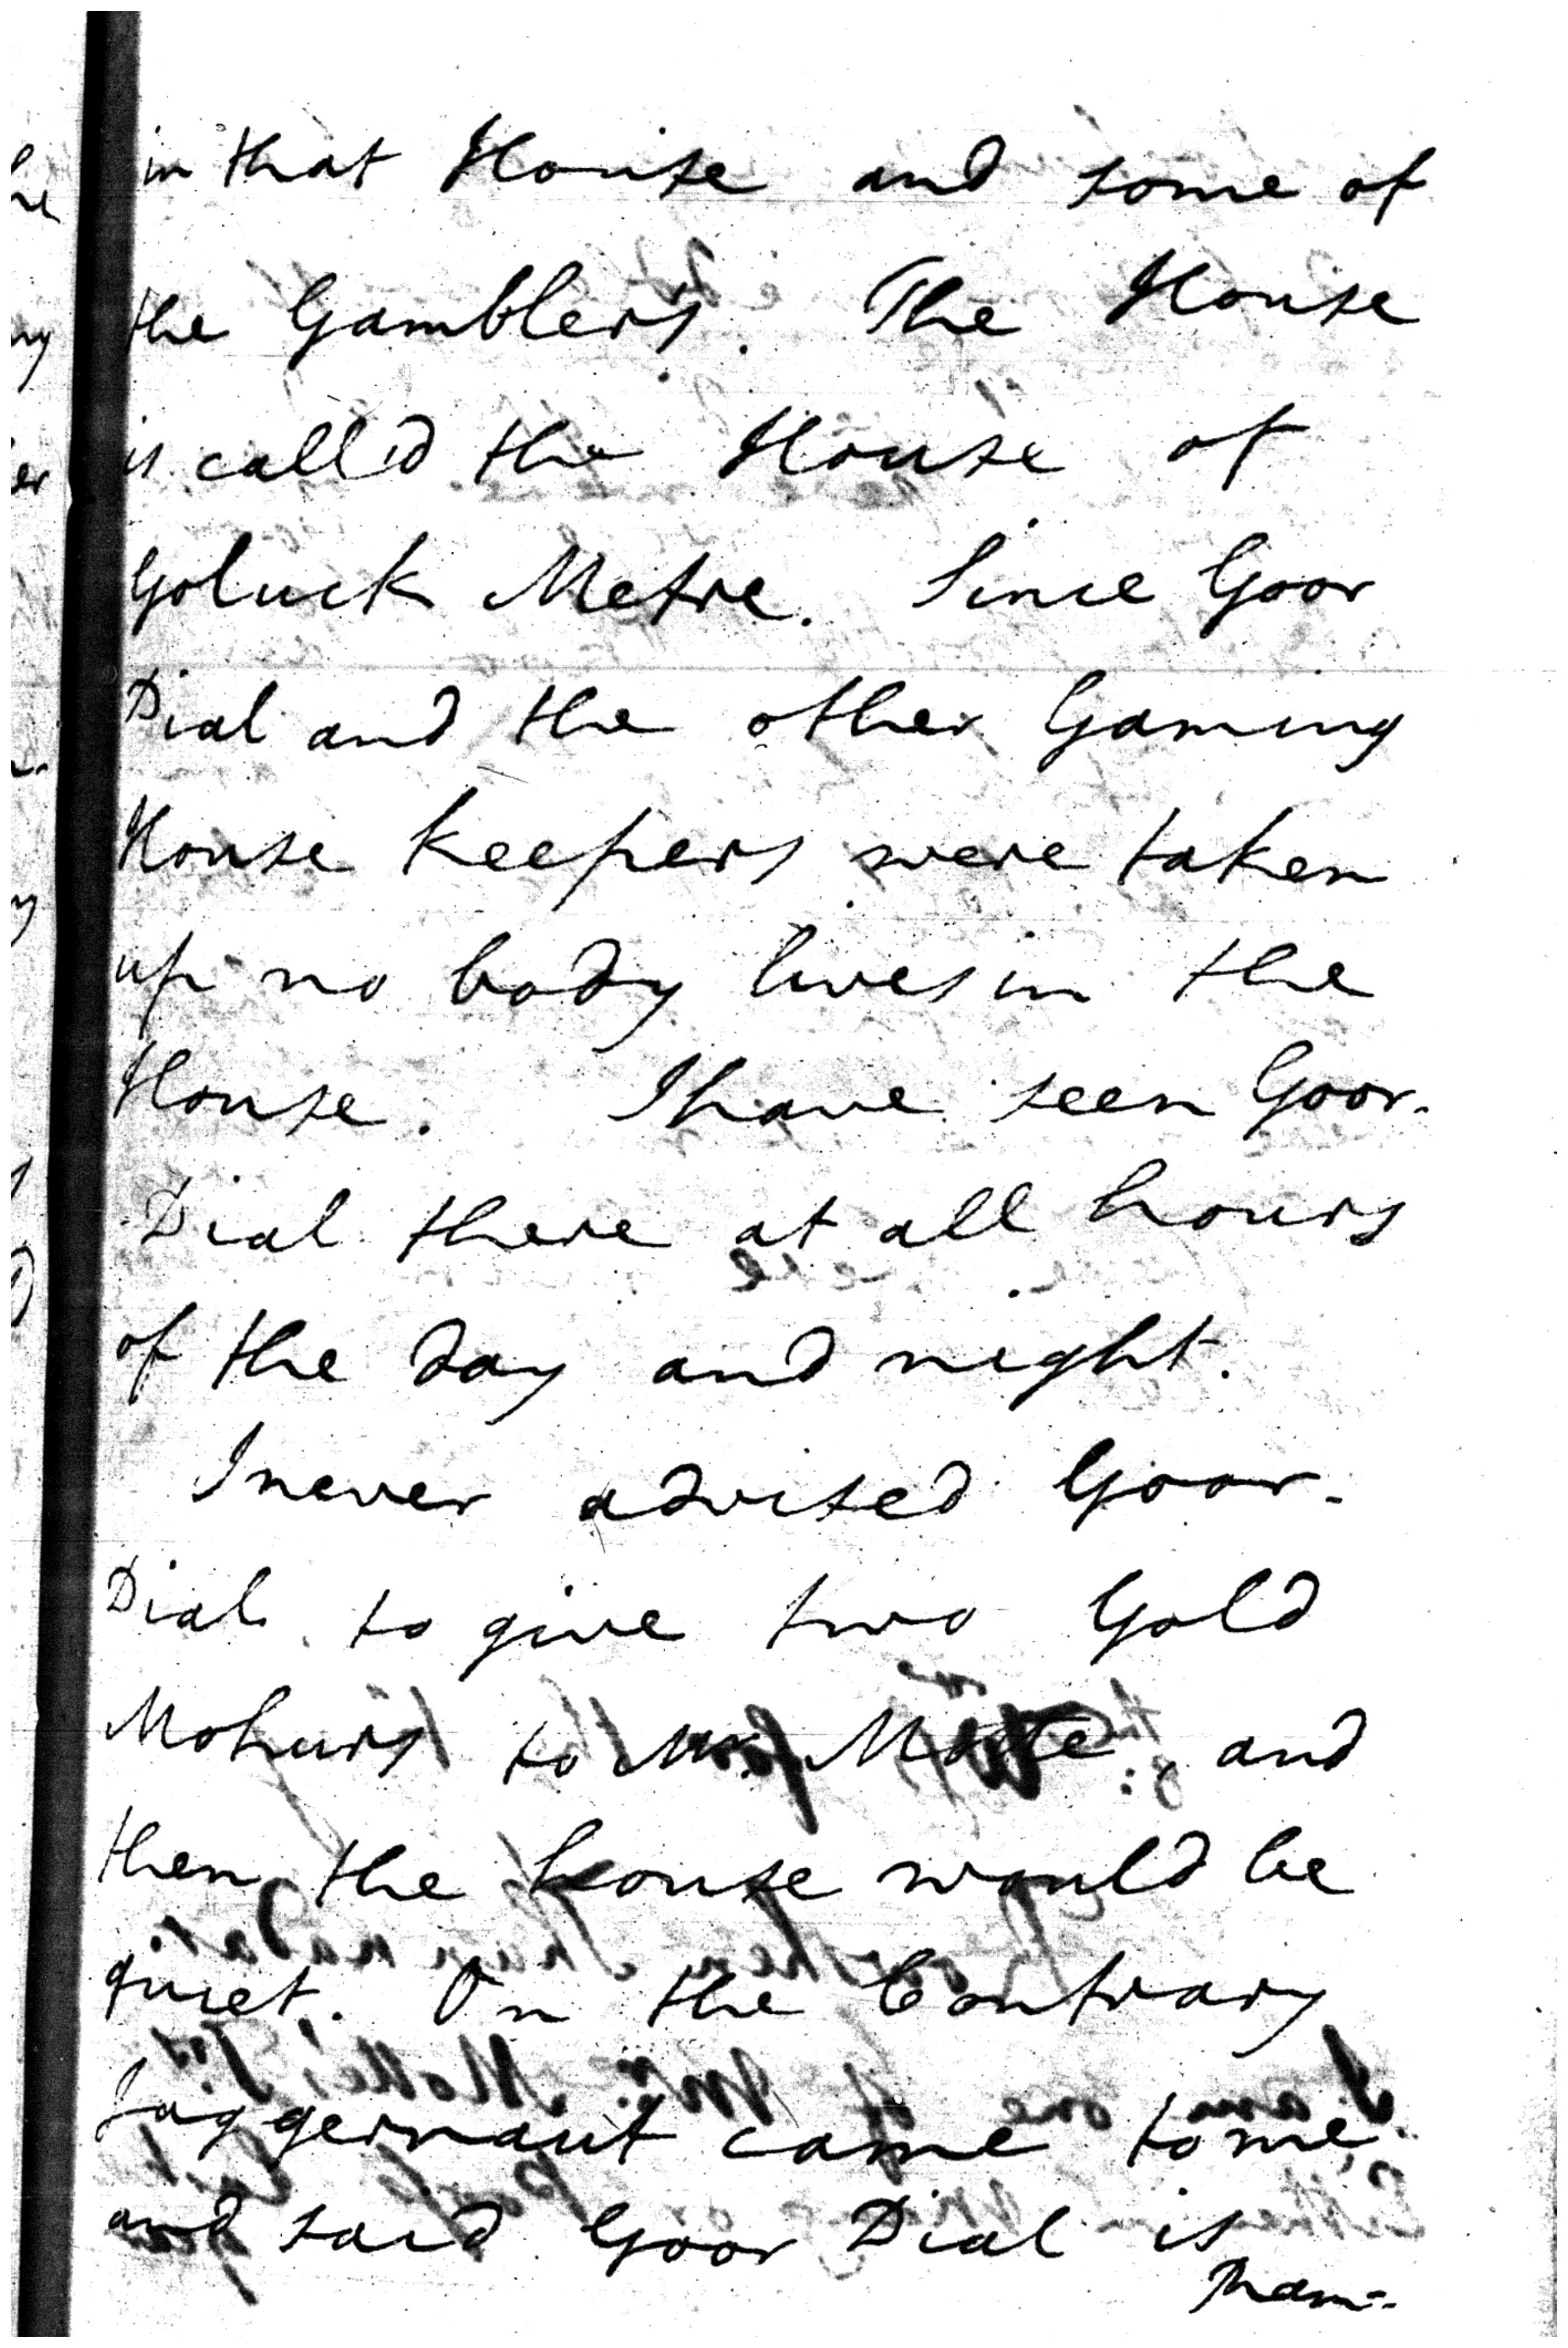 in that House and some of
the Gamblers. The House
is call'd the House of
Goluck Metre. Since Goor
Dial and the other Gaming
House keepers were taken
up no body lives in the
House. I have seen Goor-
Dial there at all hours
of the day and night.
I never advised Goor-
Dial to give two Gold
Mohurs to Mr. Motte, and
then the house would be
quiet. On the Contrary
Juggernaut came to me
and said Goor Dial is